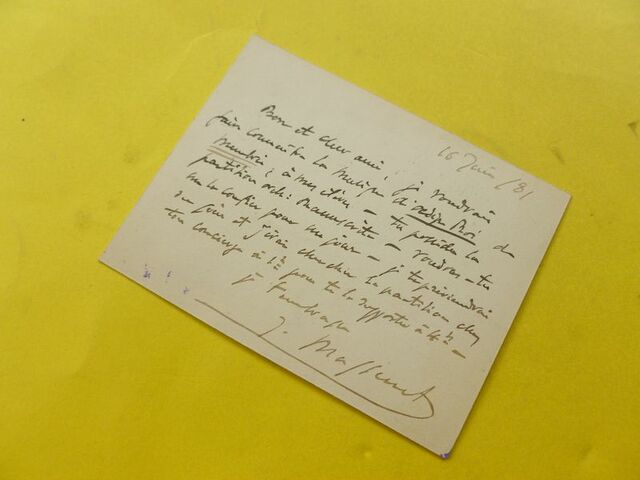 16 Juin /81
Bon et cher ami, je voudrais
faire connaître la musique d'Œdipe Roi de
Membrée, à mes élèves - tu possèdes la
partition orch: manuscrite - voudrais-tu
me la confier pour un jour - je te préviendrai
un soir et j'irai chercher la partition chez
ton concierge à 1h pour te la rapporter à 4h -
J. Massenet